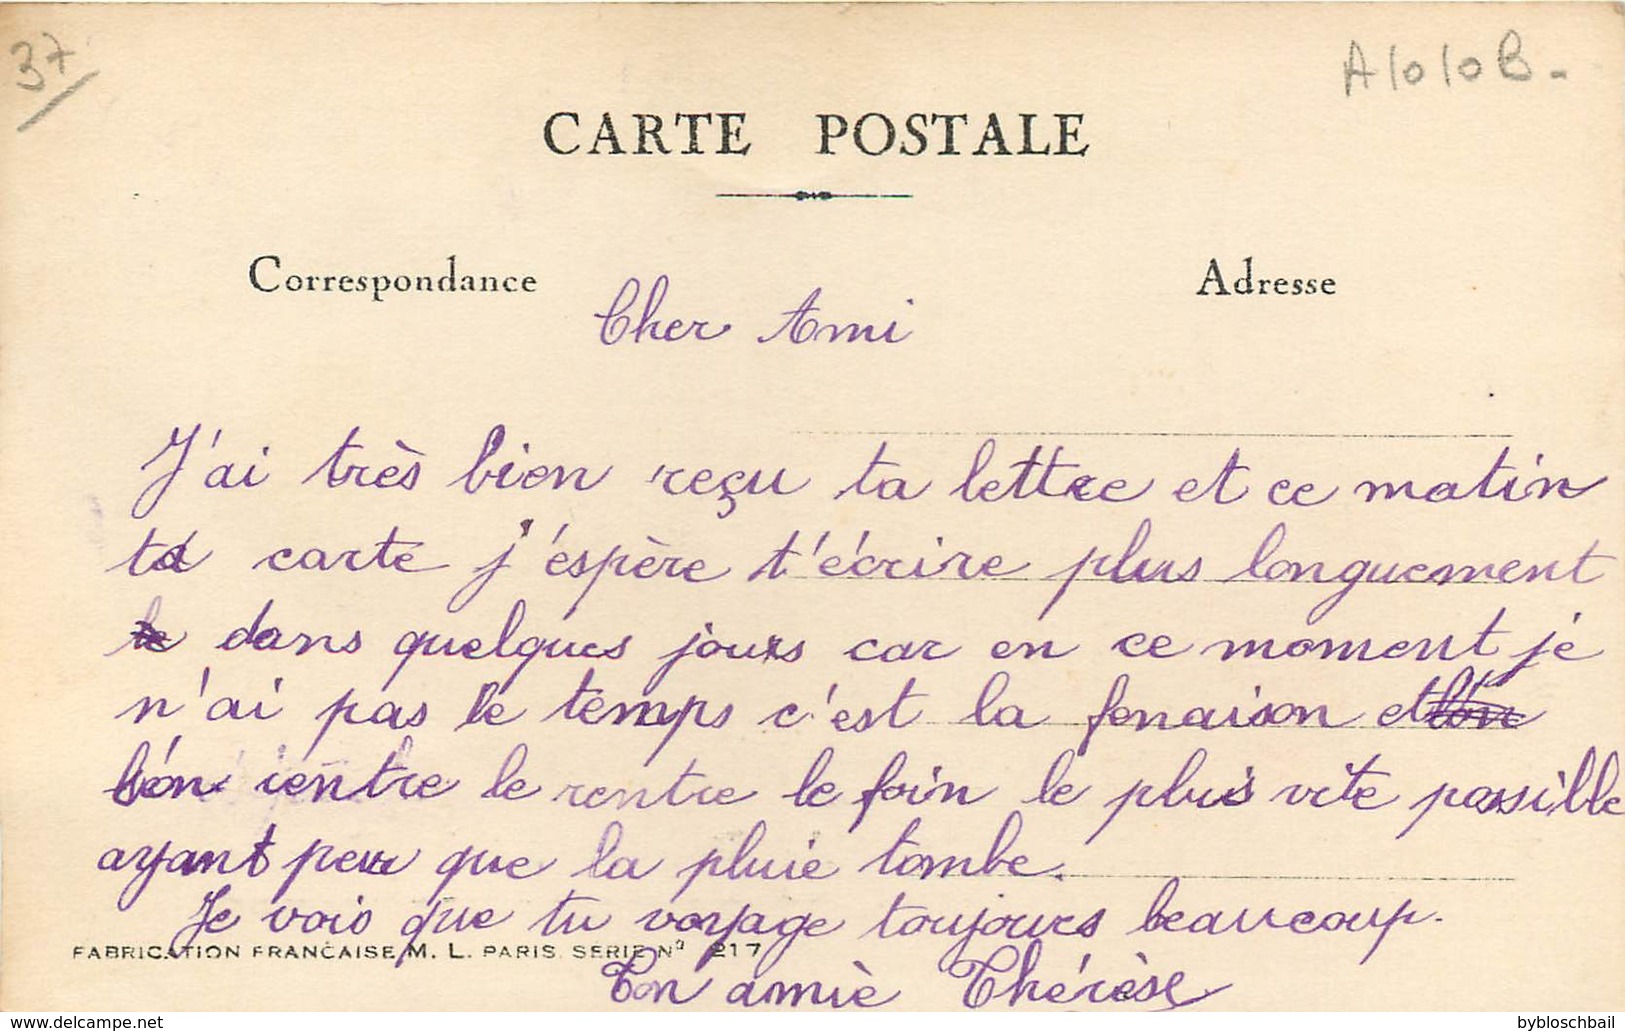 37
A1010B.
CARTE POSTALE
Correspondance
Adresse
Cher Ami
J'ai très bien reçu ta lettre et ce matin
ta carte j'espère t'écrire plus longuement
le dans quelques jours car en ce moment je
n'ai pas le temps c'est la fenaison et l'on
l'on rentre le rentre le foin le plus vite possible
ayant peur que la pluie tombe.
Je vois que tu voyage toujours beaucoup.
FABRICATION FRANÇAISE M. L. PARIS SERIE Nº 217
Ton amie Thérèse
delcampe.net
bybloschbail